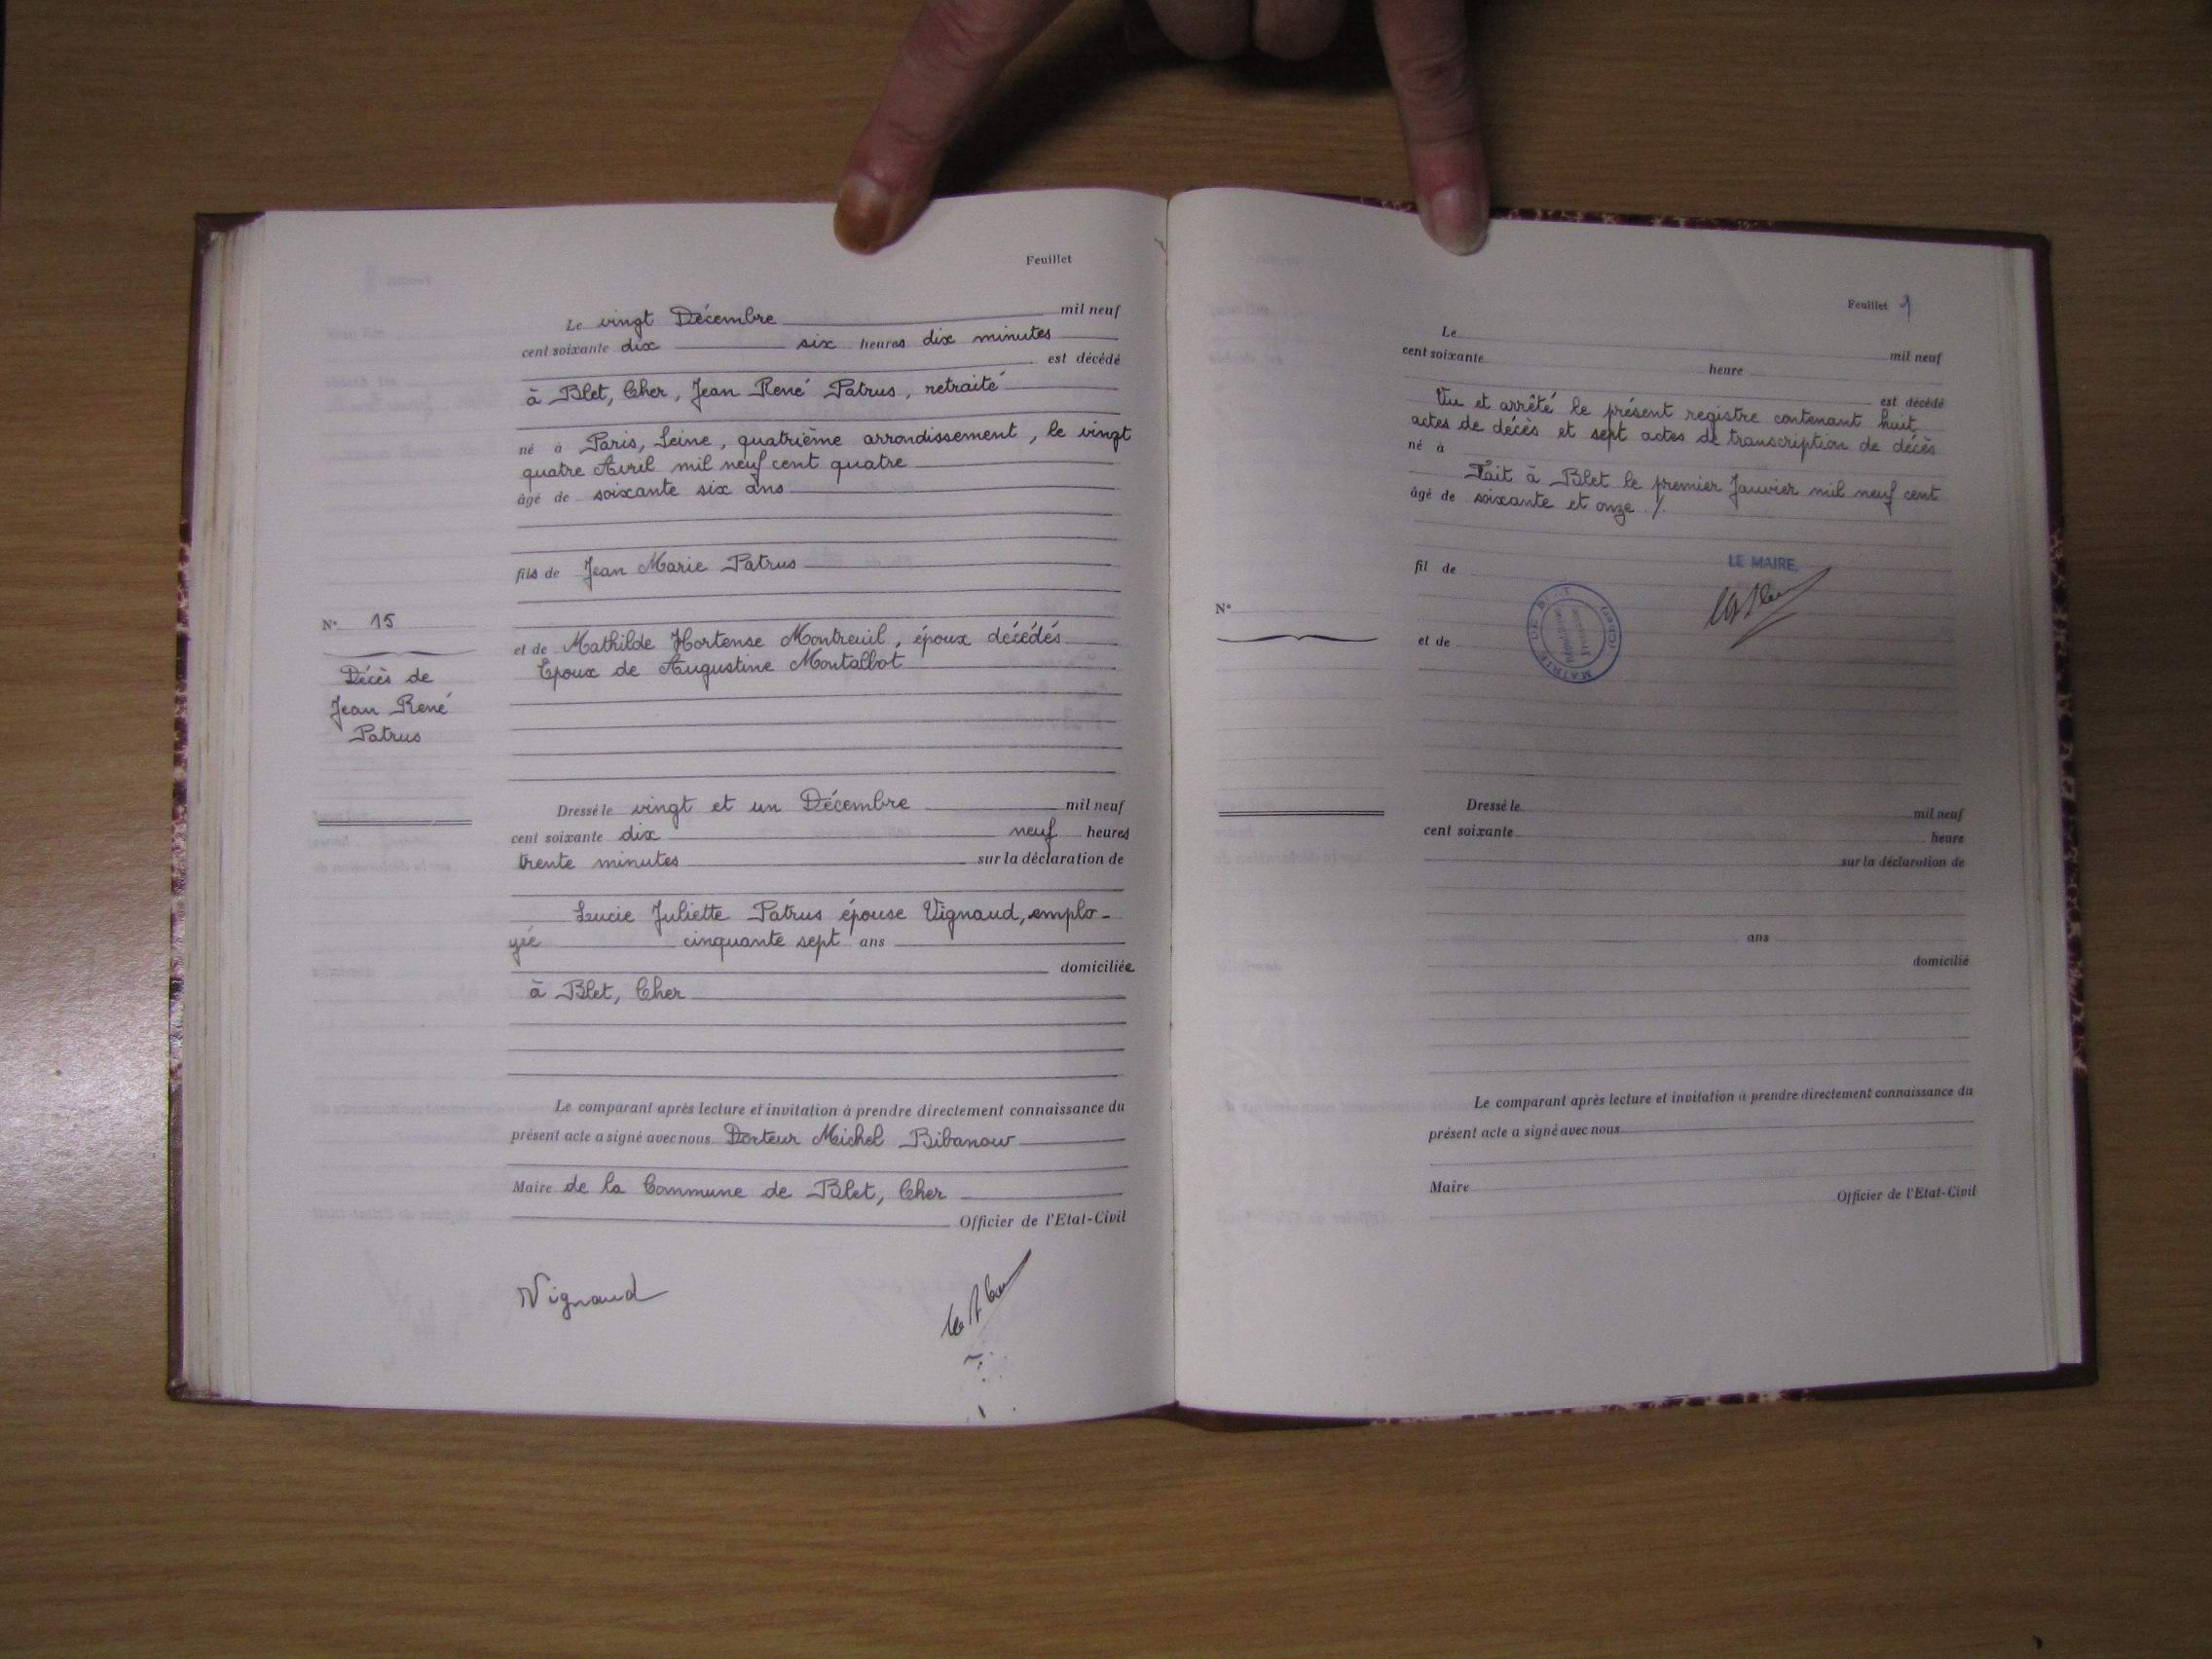 Feuillet
Le vingt Décembre mil neuf
cent soixante dix six heures dix minutes
est décédé
à Blet, Cher, Jean René Patrus, retraité
né à Paris, Seine, quatrième arrondissement, le vingt
quatre Avril mil neuf cent quatre
âgé de soixante six ans
fils de Jean Marie Patrus
N° 15
et de Mathilde Hortense Montreuil, époux décédés
Epoux de Augustine Montalbot
Décès de
Jean René
Patrus
Dressé le vingt et un Décembre mil neuf
cent soixante dix neuf heures
trente minutes sur la déclaration de
Lucie Juliette Patrus épouse Vignaud, emplo-
yée cinquante sept ans
domiciliée
à Blet, Cher
Le comparant après lecture et invitation à prendre directement connaissance du
présent acte a signé avec nous Docteur Michel Bibanow
Maire de la Commune de Blet, Cher
Officier de l'Etat-Civil
Vignaud
Feuillet 9
Le mil neuf
cent soixante heure
est décédé
Vu et arrêté le présent registre contenant huit
actes de décès et sept actes de transcription de décès
né à
Fait à Blet le premier Janvier mil neuf cent
âgé de soixante et onze ./.
LE MAIRE,
fil de
MAIRIE DE (Cher)
N°
et de
Dressé le mil neuf
cent soixante heure
sur la déclaration de
ans
domicilié
Le comparant après lecture et invitation à prendre directement connaissance du
présent acte a signé avec nous
Maire
Officier de l'Etat-Civil